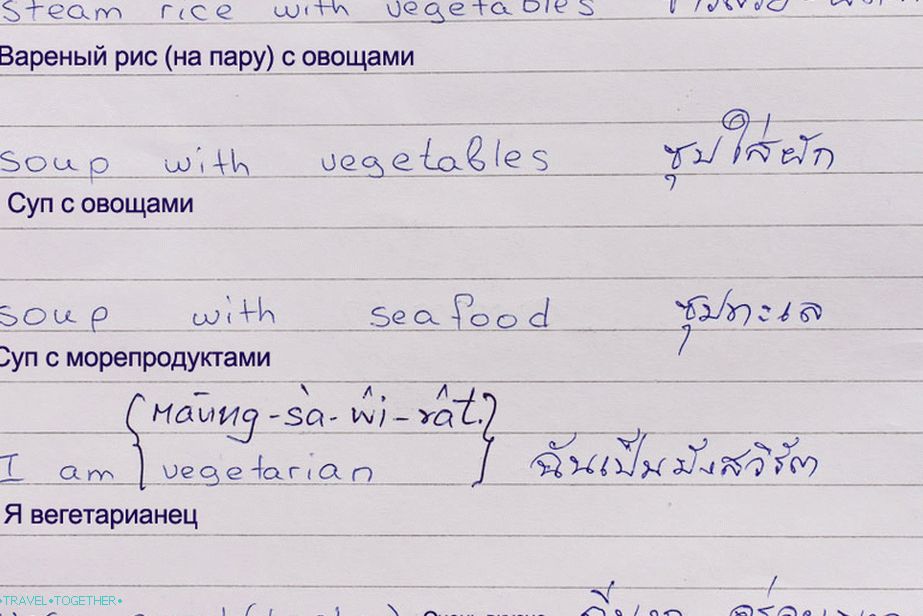 Steam rice with vegetables
Вареный рис (на пару) с овощами
soup with vegetables ซุปใส่ผัก
Суп с овощами
soup with seafood ซุปทะเล
Суп с морепродуктами
(Maūng-sà-ŵi-rât.)
I am vegetarian ฉันเป็นมังสวิรัต
Я вегетарианец
•TRAVEL•TOGETHER•